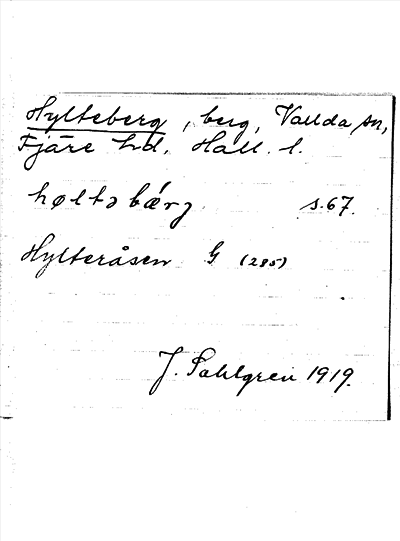 Hylteberg, berg, Vallda sn,
Fjäre hd. Hall. l.
høltə bǽrj s. 67.
Hylteråsen G (285)
J. Sahlgren 1919.